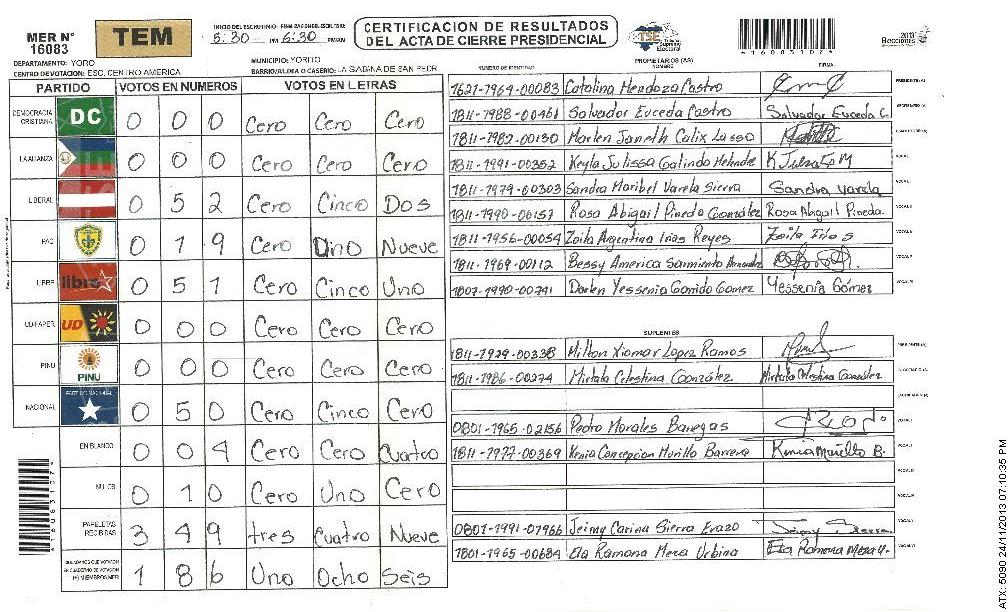 MER N° 16083
TEM
INICIO DEL ESCRUTINIO:
5:30 PM 6:30 PM/AM
CERTIFICACION DE RESULTADOS
DEL ACTA DE CIERRE PRESIDENCIAL
TSE Tribunal Supremo Electoral
4160831074
2013
Elecciones
DEPARTAMENTO: YORO
MUNICIPIO: YORITO
CENTRO DE VOTACION: ESC. CENTRO AMERICA
BARRIO/ALDEA O CASERIO:
PARTIDO VOTOS EN NUMEROS VOTOS EN LETRAS
DEMOCRACIA CRISTIANA DC 0 0 0 Cero Cero Cero
LA ALIANZA 0 0 0 Cero Cero Cero
LIBERAL 0 5 2 Cero Cinco Dos
PAC 0 1 9 Cero Uno Nueve
LIBRE libre 0 5 1 Cero Cinco Uno
UD-FAPER UD 0 0 0 Cero Cero Cero
PINU PINU 0 0 0 Cero Cero Cero
NACIONAL PARTIDO NACIONAL 0 5 0 Cero Cinco Cero
EN BLANCO 0 0 4 Cero Cero Cuatro
NULOS 0 1 0 Cero Uno Cero
PAPELETAS RECIBIDAS 3 4 9 tres Cuatro Nueve
CIUDADANOS QUE VOTARON EN CUADERNO DE VOTACION (+) MIEMBROS MER 1 8 6 Uno Ocho Seis
NUMERO DE IDENTIDAD PROPIETARIOS (AS) NOMBRE FIRMA
1621-1969-00083 Catalina Mendoza Castro PRESIDENTE(A)
1811-1988-00461 Salvador Euceda Castro Salvador Euceda C. SECRETARIO(A)
1811-1982-00130 Marlen Janeth Calix Lasso
1811-1991-00352 Keyla Julissa Galindo VOCAL I
1811-1979-00303 Sandra Maribel Varela Sierra Sandra Varela
1811-1990-00157 Rosa Abigail Pineda González Rosa Abigail Pineda
1811-1956-00054 Zoila Argentina Reyes Zoila
1811-1969-00112 Bessy America Sarmiento
1807-1990-00741 Darlen Yessenia Garrido Gomez Yessenia Gómez
SUPLENTES
1811-1979-00338 Milton Xiomar Lopez Ramos
1811-1986-00274 Mirtala Celestina González Mirtala Celestina González
0801-1965-02156 Pedro Morales Banegas
1811-1977-00369 Kenia Concepcion Murillo Barrera Kenia Murillo B.
0801-1991-07966 Jeimy Carina Sierra Erazo Jeimy Sierra
1801-1965-00684 Ela Ramona Meza Urbina Ela Ramona Meza U.
4160831074
ATX: 5090 24/11/2013 07:10:35 PM